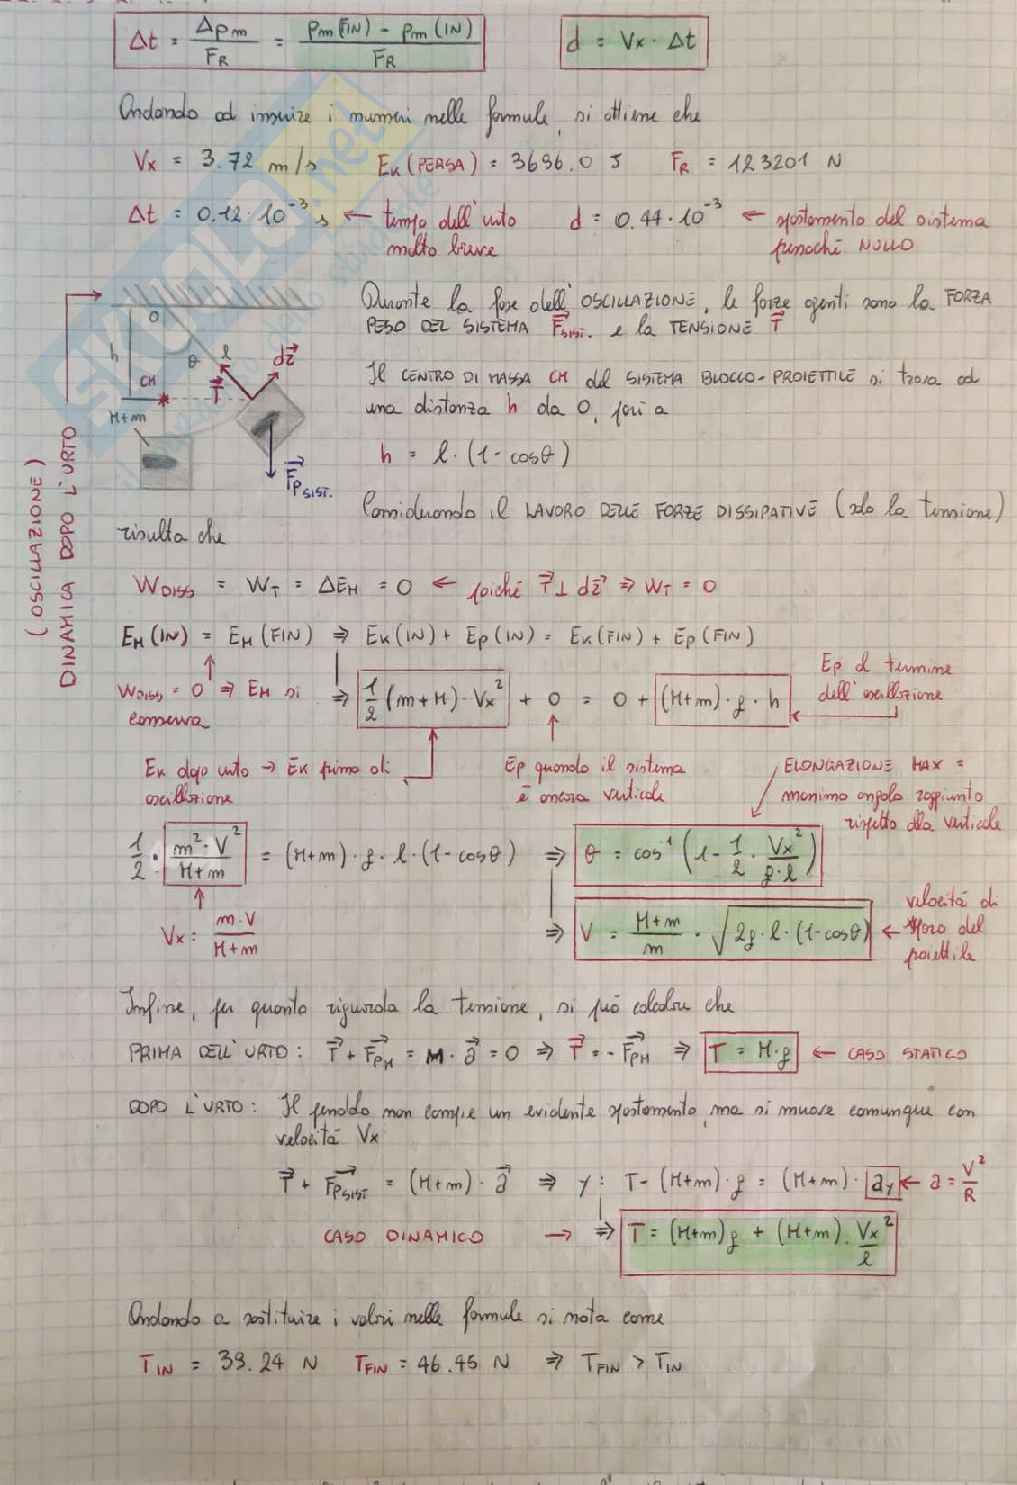 Δt = Δpm / FR = pm(FIN) - pm(IN) / FR    d = Vx · Δt
Andando ad inserire i numeri nelle formule, si ottiene che
Vx = 3.72 m/s    EK(PERSA) = 3696.0 J    FR = 123201 N
Δt = 0.12·10⁻³ s ← tempo dell'urto molto breve    d = 0.44·10⁻³ ← spostamento del sistema pressoché NULLO
Durante la fase dell'OSCILLAZIONE, le forze agenti sono la FORZA
PESO DEL SISTEMA F⃗sist. e la TENSIONE T⃗
O
h
θ
l
T⃗
dz⃗
CM
M+m
F⃗P SIST.
DINAMICA DOPO L'URTO
(OSCILLAZIONE)
Il CENTRO DI MASSA CM del SISTEMA BLOCCO-PROIETTILE si trova ad
una distanza h da O, pari a
h = l·(1-cosθ)
Considerando il LAVORO DELLE FORZE DISSIPATIVE (solo la tensione)
risulta che
WDISS = WT = ΔEM = 0 ← poiché T⃗ ⊥ dz⃗ ⇒ WT = 0
EM(IN) = EM(FIN) ⇒ EK(IN) + EP(IN) = EK(FIN) + EP(FIN)
WDISS = 0 ⇒ EM si conserva
⇒ 1/2 (m+M)·Vx² + 0 = 0 + (M+m)·g·h
Ep al termine
dell'oscillazione
EK dopo urto → EK prima di
oscillazione
Ep quando il sistema
è ancora verticale
ELONGAZIONE MAX =
massimo angolo raggiunto
rispetto alla verticale
1/2 · m²·V² / M+m = (M+m)·g·l·(1-cosθ) ⇒ θ = cos⁻¹(1 - 1/2 · Vx² / g·l)
Vx = m·V / M+m
⇒ V = M+m / m · √2g·l·(1-cosθ) ← velocità di
sparo del
proiettile
Infine, per quanto riguarda la tensione, si può calcolare che
PRIMA DELL'URTO: T⃗ + F⃗PM = M·a⃗ = 0 ⇒ T⃗ = -F⃗PM ⇒ T = M·g ← CASO STATICO
DOPO L'URTO: Il pendolo non compie un evidente spostamento, ma si muove comunque con
velocità Vx
T⃗ + F⃗P SIST = (M+m)·a⃗ ⇒ y: T - (M+m)·g = (M+m)·ay ← a = V²/R
CASO DINAMICO → ⇒ T = (M+m)g + (M+m)·Vx²/l
Andando a sostituire i valori nelle formule si nota come
TIN = 39.24 N    TFIN = 46.45 N ⇒ TFIN > TIN